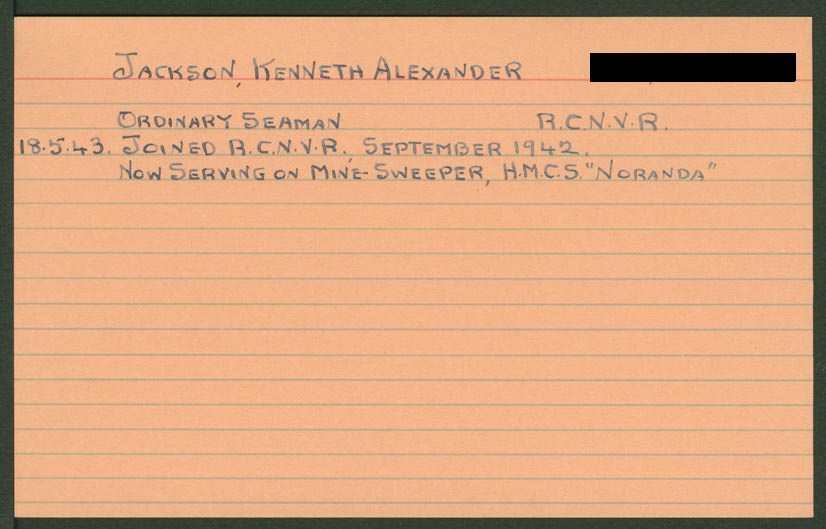 JACKSON, KENNETH ALEXANDER
ORDINARY SEAMAN R.C.N.V.R.
18.5.43. JOINED R.C.N.V.R. SEPTEMBER 1942.
NOW SERVING ON MINE-SWEEPER, H.M.C.S. "NORANDA"